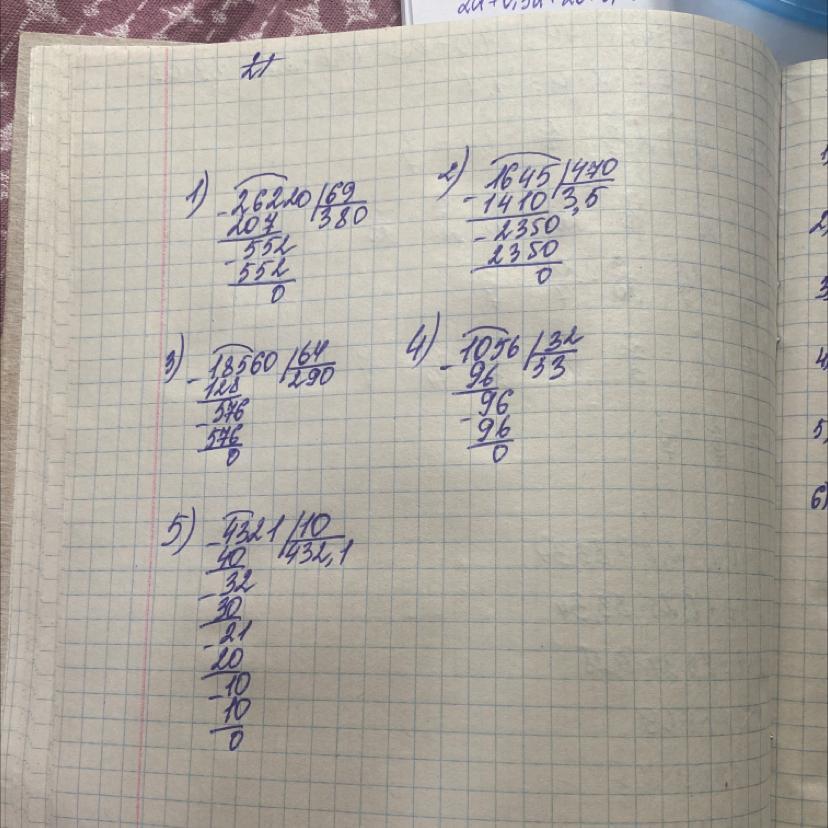 21
1) 26220 | 69
- 207 380
- 552
552
0
2) 1645 | 470
- 1410 3,5
- 2350
2350
0
3) - 18560 | 64
128 290
- 576
576
0
4) 1056 | 32
- 96 33
- 96
96
0
5) - 4321 | 10
40 432,1
- 32
30
- 21
20
- 10
10
0
2)
3
4)
5)
6)